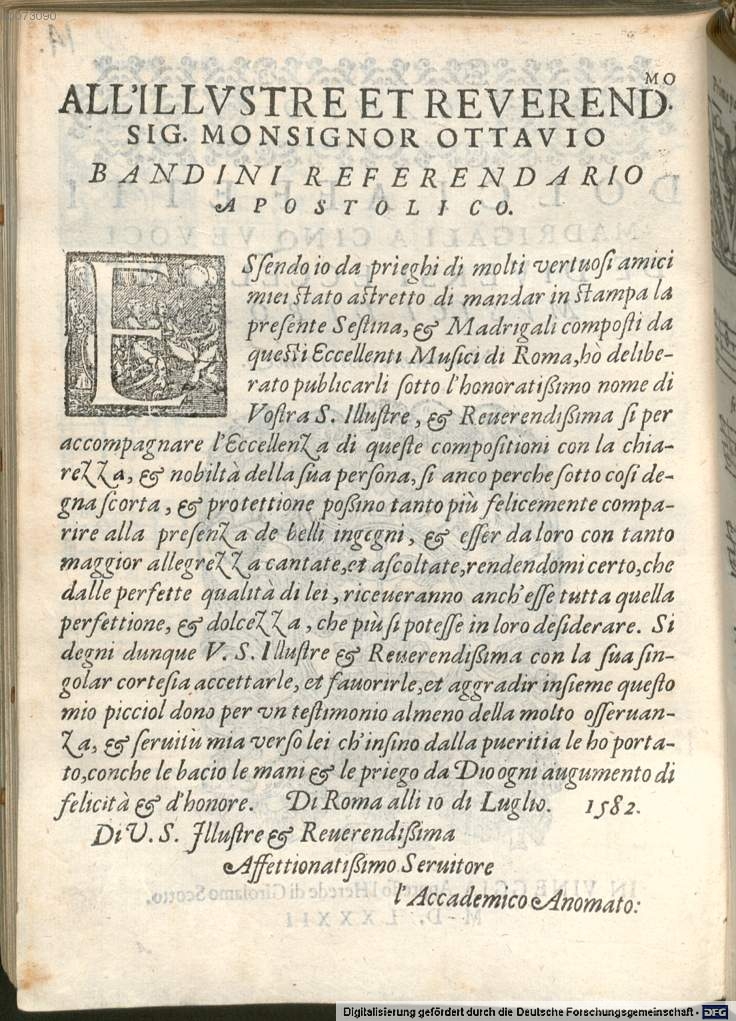 ALL'ILLVSTRE ET REVEREND.MO
SIG. MONSIGNOR OTTAVIO
BANDINI REFERENDARIO
APOSTOLICO.
ESsendo io da prieghi di molti vertuosi amici
miei stato astretto di mandar in stampa la
presente Sestina, & Madrigali composti da
questi Eccellenti Musici di Roma, hò delibe-
rato publicarli sotto l'honoratißimo nome di
Vostra S. Illustre, & Reuerendißima si per
accompagnare l'Eccellenza di queste compositioni con la chia-
rezza, & nobiltà della sua persona, si anco perche sotto cosi de-
gna scorta, & protettione poßino tanto più felicemente compa-
rire alla presenza de belli ingegni, & esser da loro con tanto
maggior allegrezza cantate, et ascoltate, rendendomi certo, che
dalle perfette qualità di lei, riceueranno anch'esse tutta quella
perfettione, & dolcezza, che più si potesse in loro desiderare. Si
degni dunque V. S. Illustre & Reuerendißima con la sua sin-
golar cortesia accettarle, et fauorirle, et aggradir insieme questo
mio picciol dono per vn testimonio almeno della molto osseruan-
za, & seruitù mia verso lei ch'insino dalla pueritia le hò porta-
to, conche le bacio le mani & le priego da Dio ogni augumento di
felicità & d'honore. Di Roma alli 10 di Luglio. 1582.
Di V. S. Illustre & Reuerendißima
Affettionatißimo Seruitore
l'Accademico Anomato:
Digitalisierung gefördert durch die Deutsche Forschungsgemeinschaft - DFG